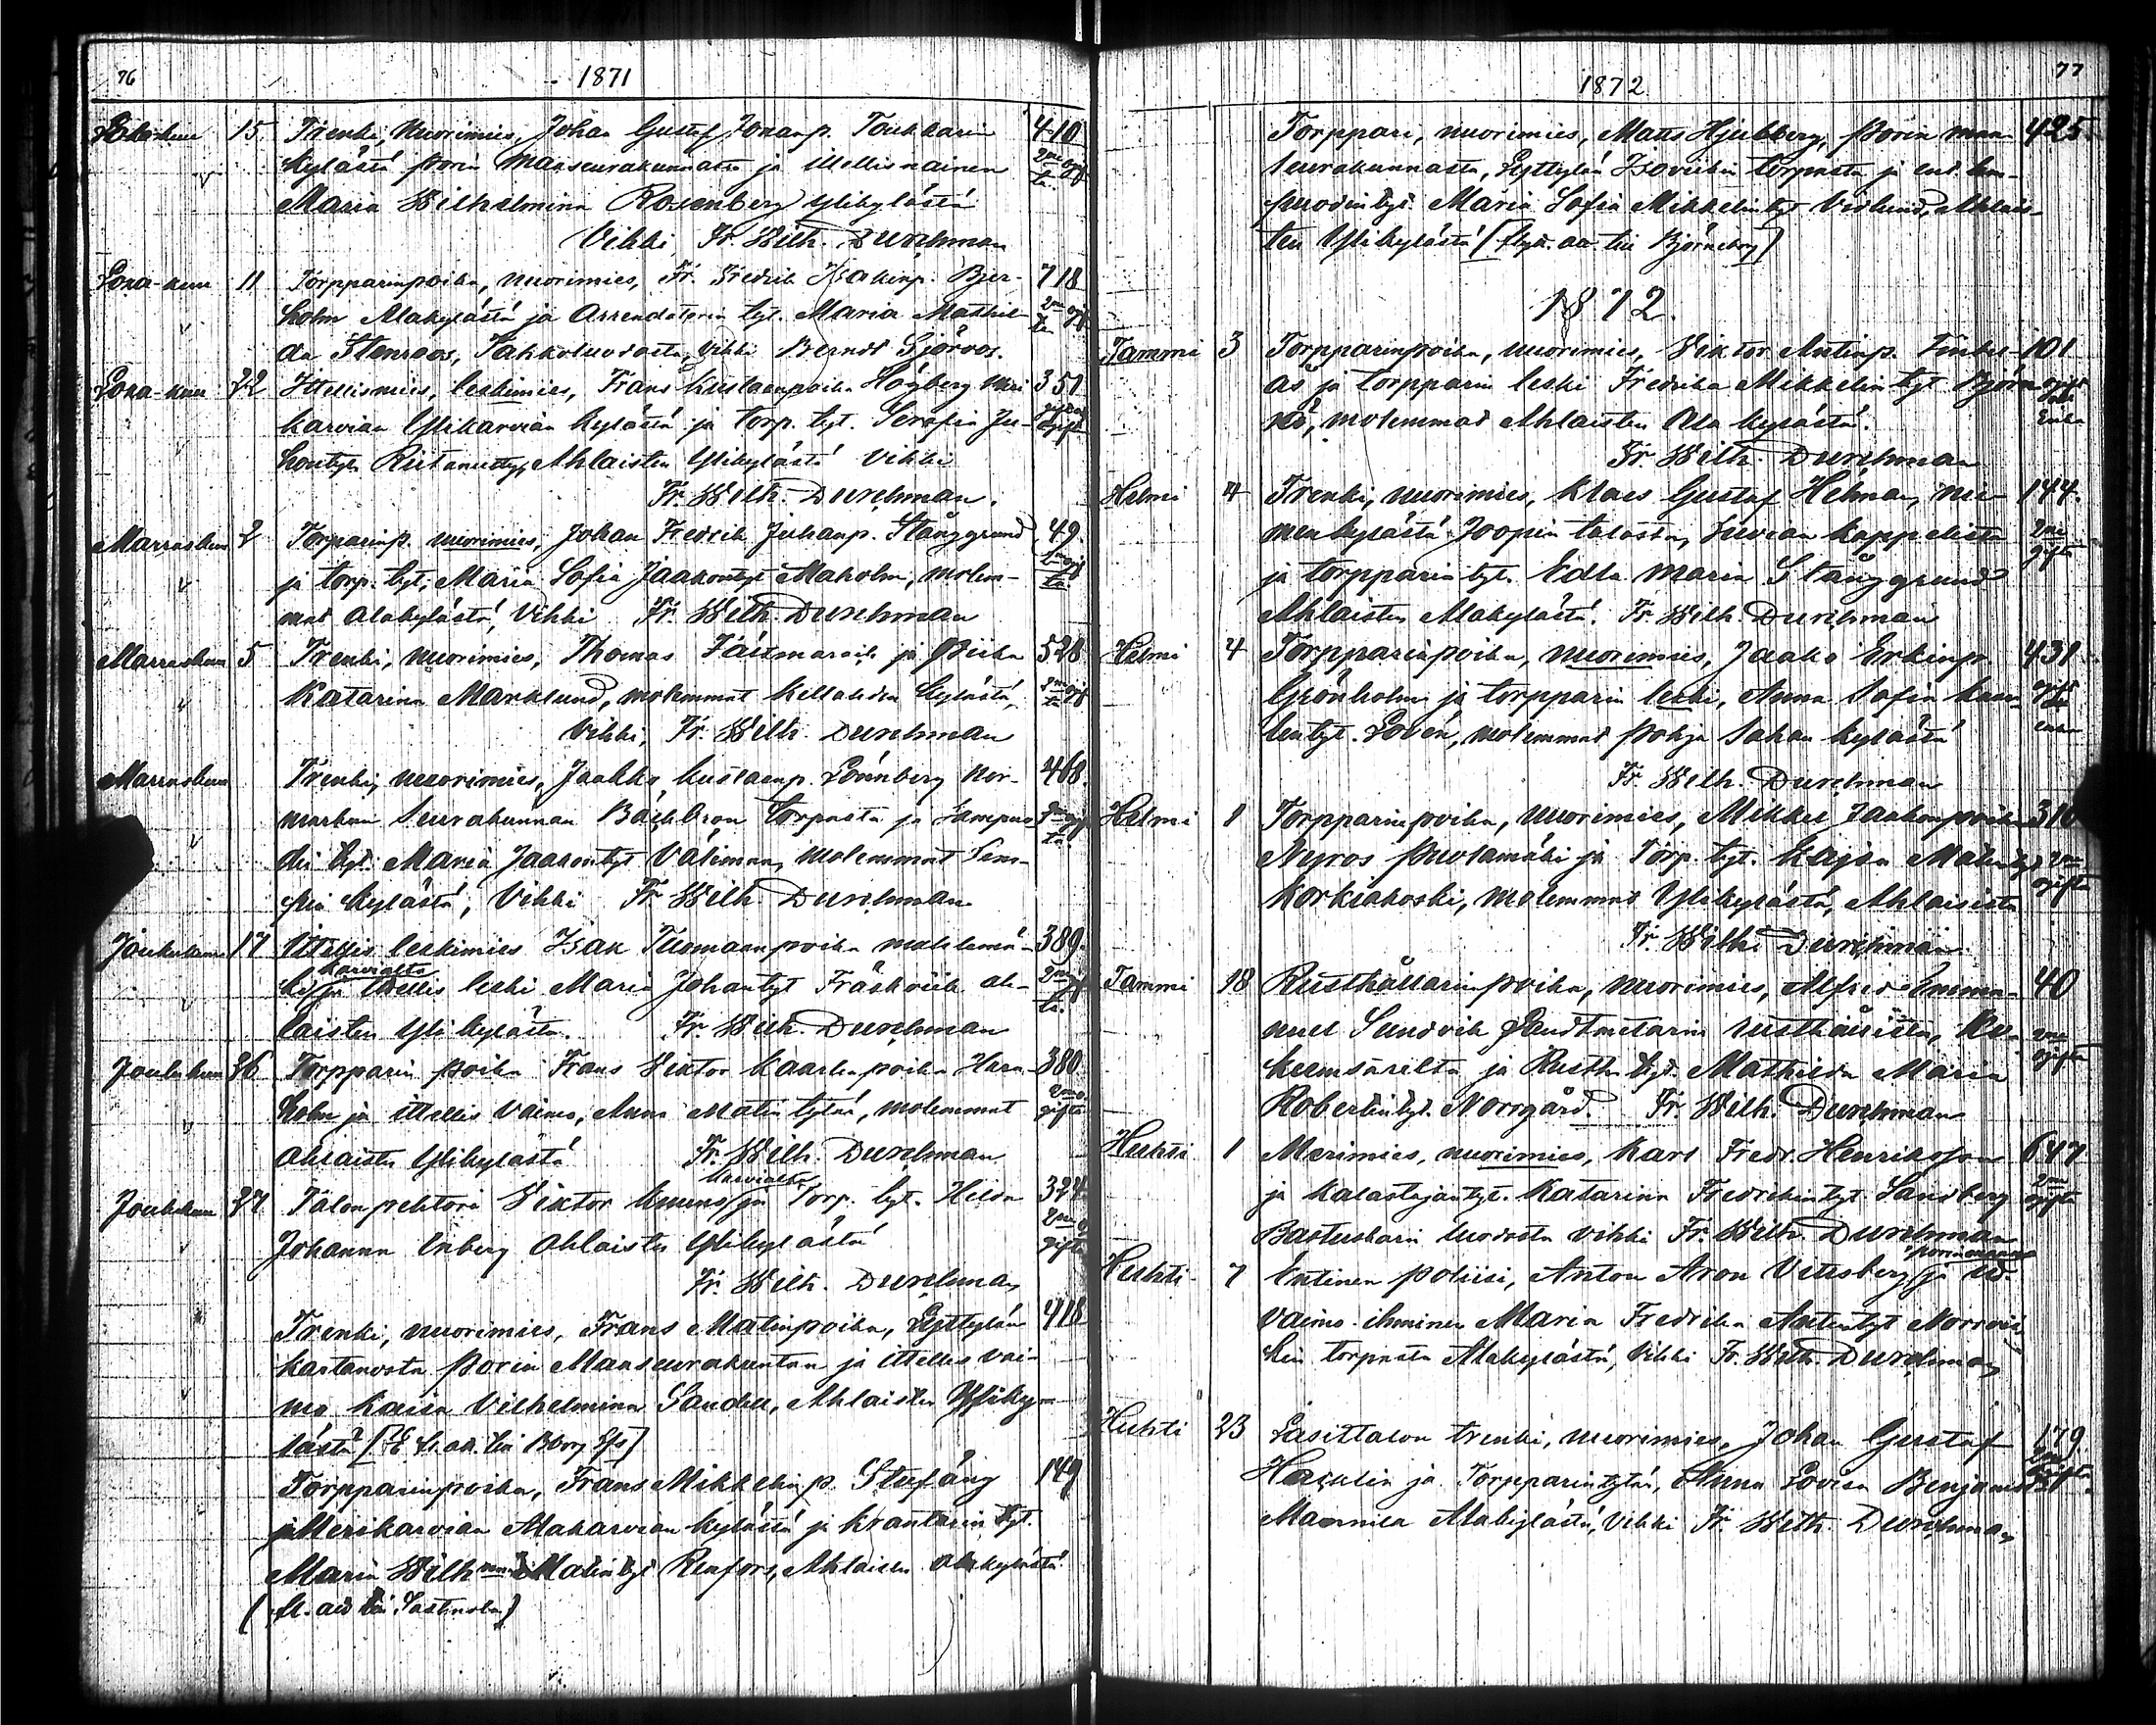 76
1871
Elo-kuu 15 Trenki, nuorimies, Johan Gustaf Jonanp. Toukkarin 410
kylästä Porin maaseurakunnasta ja ittellisnainen 2ne ogif
Maria Wilhelmina Rosenberg ylikylästä ta.
Vihki Fr. Wilh. Durchman
Loka-kuu 11 Torpparinpoika, nuorimies, Fr. Fredrik Isakinp. Bjer- 718
holm Alakylästä ja Arrendatorin tyt. Maria Mathil- 2ne ogif
da Stenroos, Vihki Berndt Sjöroos. ta
Loka-kuu 22 Ittellismies, leskimies, Frans Kustaanpoika Högberg Meri 351
karvian Ylikarvian kylästä ja torp. tyt. Serafia Ju-
hontyt. Ahlaisten Ylikylästä Vihki
Fr. Wilh. Durchman.
Marraskuu 2 Torparinp. nuorimies, Johan Fredrik Juhanp. Stånggrund 49.
ja torp. tyt. Maria Sofia Jaakontyt Maholm, molem- 2ne ogif
mat Alakylästä, Vihki Fr. Wilh. Durchman ta
Marraskuu 5 Trenki, nuorimies, Thomas ja Piika 528
Katarina Marklund, molemmat Kellahden kylästä, 2ne ogif
Vihki, Fr. Wilh. Durchman
Marraskuu Trenki, nuorimies, Jaakko Kustaanp. Lönnberg Nor- 468.
markun Seurakunnan torpasta ja Lampuo 2ne ogif
din tyt. Maria Jaakontyt Välimaa, molemmat Lam- ta
pin kylästä, Vihki Fr Wilh. Durchman
Joulukuu 17 Ittellis leskimies Isak Tuomaanpoika 389.
karvialta
ja ittellis leski Maria Johantyt Fräskvik ah- 2ne gif
laisten Ylikylästä. Fr. Wilh. Durchman ta.
Joulukuu 26 Torpparin poika Frans Viktor Kaarlenpoika Hara- 380
holm ja ittellis vaimo, Anna Matin tytär, molemmat 2ne gifta
Ahlaisten Ylikylästä Fr. Wilh. Durchman
karvialta
Joulukuu 27 Talon pehtori Viktor ja Torp. tyt. Hilda 324
Johanna Enberg Ahlaisten Ylikylästä 2ne gifta
Fr. Wilh. Durchman
Trenki, nuorimies, Frans Matinpoika, Lyttylän 418
kartanosta Porin Maaseurakuntaa ja ittellis vai-
mo Kaisa Vilhelmina Sandell, Ahlaisten Yliky-
lästä
Torpparinpoika, Frans Mikkelinp. Stufäng 149
Merikarvian Alakarvian kylästä ja kvantarin tyt.
Maria Wilhmna Matintyt Renfors, Ahlaisten Alakylästä
(fl. att till Sastmola)
77
1872
Torppari, nuorimies, Matts Hjulberg, Porin maa- 425.
seurakunnasta, Lyttylän Isovikin torpasta ja ent. lam-
puodintyt. Maria Sofia Mikkelintyt Vidlund, Ahlais-
ten Ylikylästä
1872.
Tammi 3 Torpparinpoika, nuorimies, Viktor Antinp. 101
as ja torpparin leski Fredrika Mikkelin tyt Björn ogift
molemmat Ahlaisten Ala kylästä. Enka
Fr. Wilh. Durchman
Helmi 4 Trenki, nuorimies, Klaes Gustaf Helman, nie- 144.
menkylästä Joopin talosta, Luvian kappelista 2ne
ja torpparin tyt. Edla Maria Stånggrund gifta
Ahlaisten Alakylästä. Fr. Wilh. Durchman
Helmi 4 Torpparinpoika, nuorimies, Jaako Erkinp. 431
Grönholm ja torpparin leski, Anna Sofia Kaar- ogift
lentyt. Lovén, molemmat Pohja Sahan kylästä enka
Fr. Wilh. Durchman
Helmi 1 Torpparinpoika, nuorimies, Mikkel Jaakonpoika 310
Nyros Puotamäki ja Torp. tyt. Kajsa Matintyt 2ne
Korkiakoski, molemmat Ylikylästä, Ahlaisista ogifta
Fr. Wilh. Durchman
Tammi 18 Rusthållarinpoika, nuorimies, Alfred Emma- 40
nuel Sundvik rusthollista, 2ne
ja Rusth. tyt. Mathilda Maria ogifta
Robertintyt. Norrgård. Fr. Wilh. Durchman
Huhti 1 Merimies, nuorimies, Karl Fredr. Henriksson 647
ja kalastajan tyt. Katarina Fredrikintyt Sandberg 2ne
luodosta Vihki Fr. Wilh. Durchman ogifta
Huhti 7 Entinen poliisi, Anton Aron Vitusberg ja
vaimo ihminen Maria Fredrika Antintyt
torpasta Alakylästä, Vihki Fr. Wilh. Durchman
Huhti 23 trenki, nuorimies, Johan Gustaf 179
Hacklin ja Torpparintytär, Anna Lovisa Benjamintyt 2ne gifta
Alakylästä, Vihki Fr. Wilh. Durchman